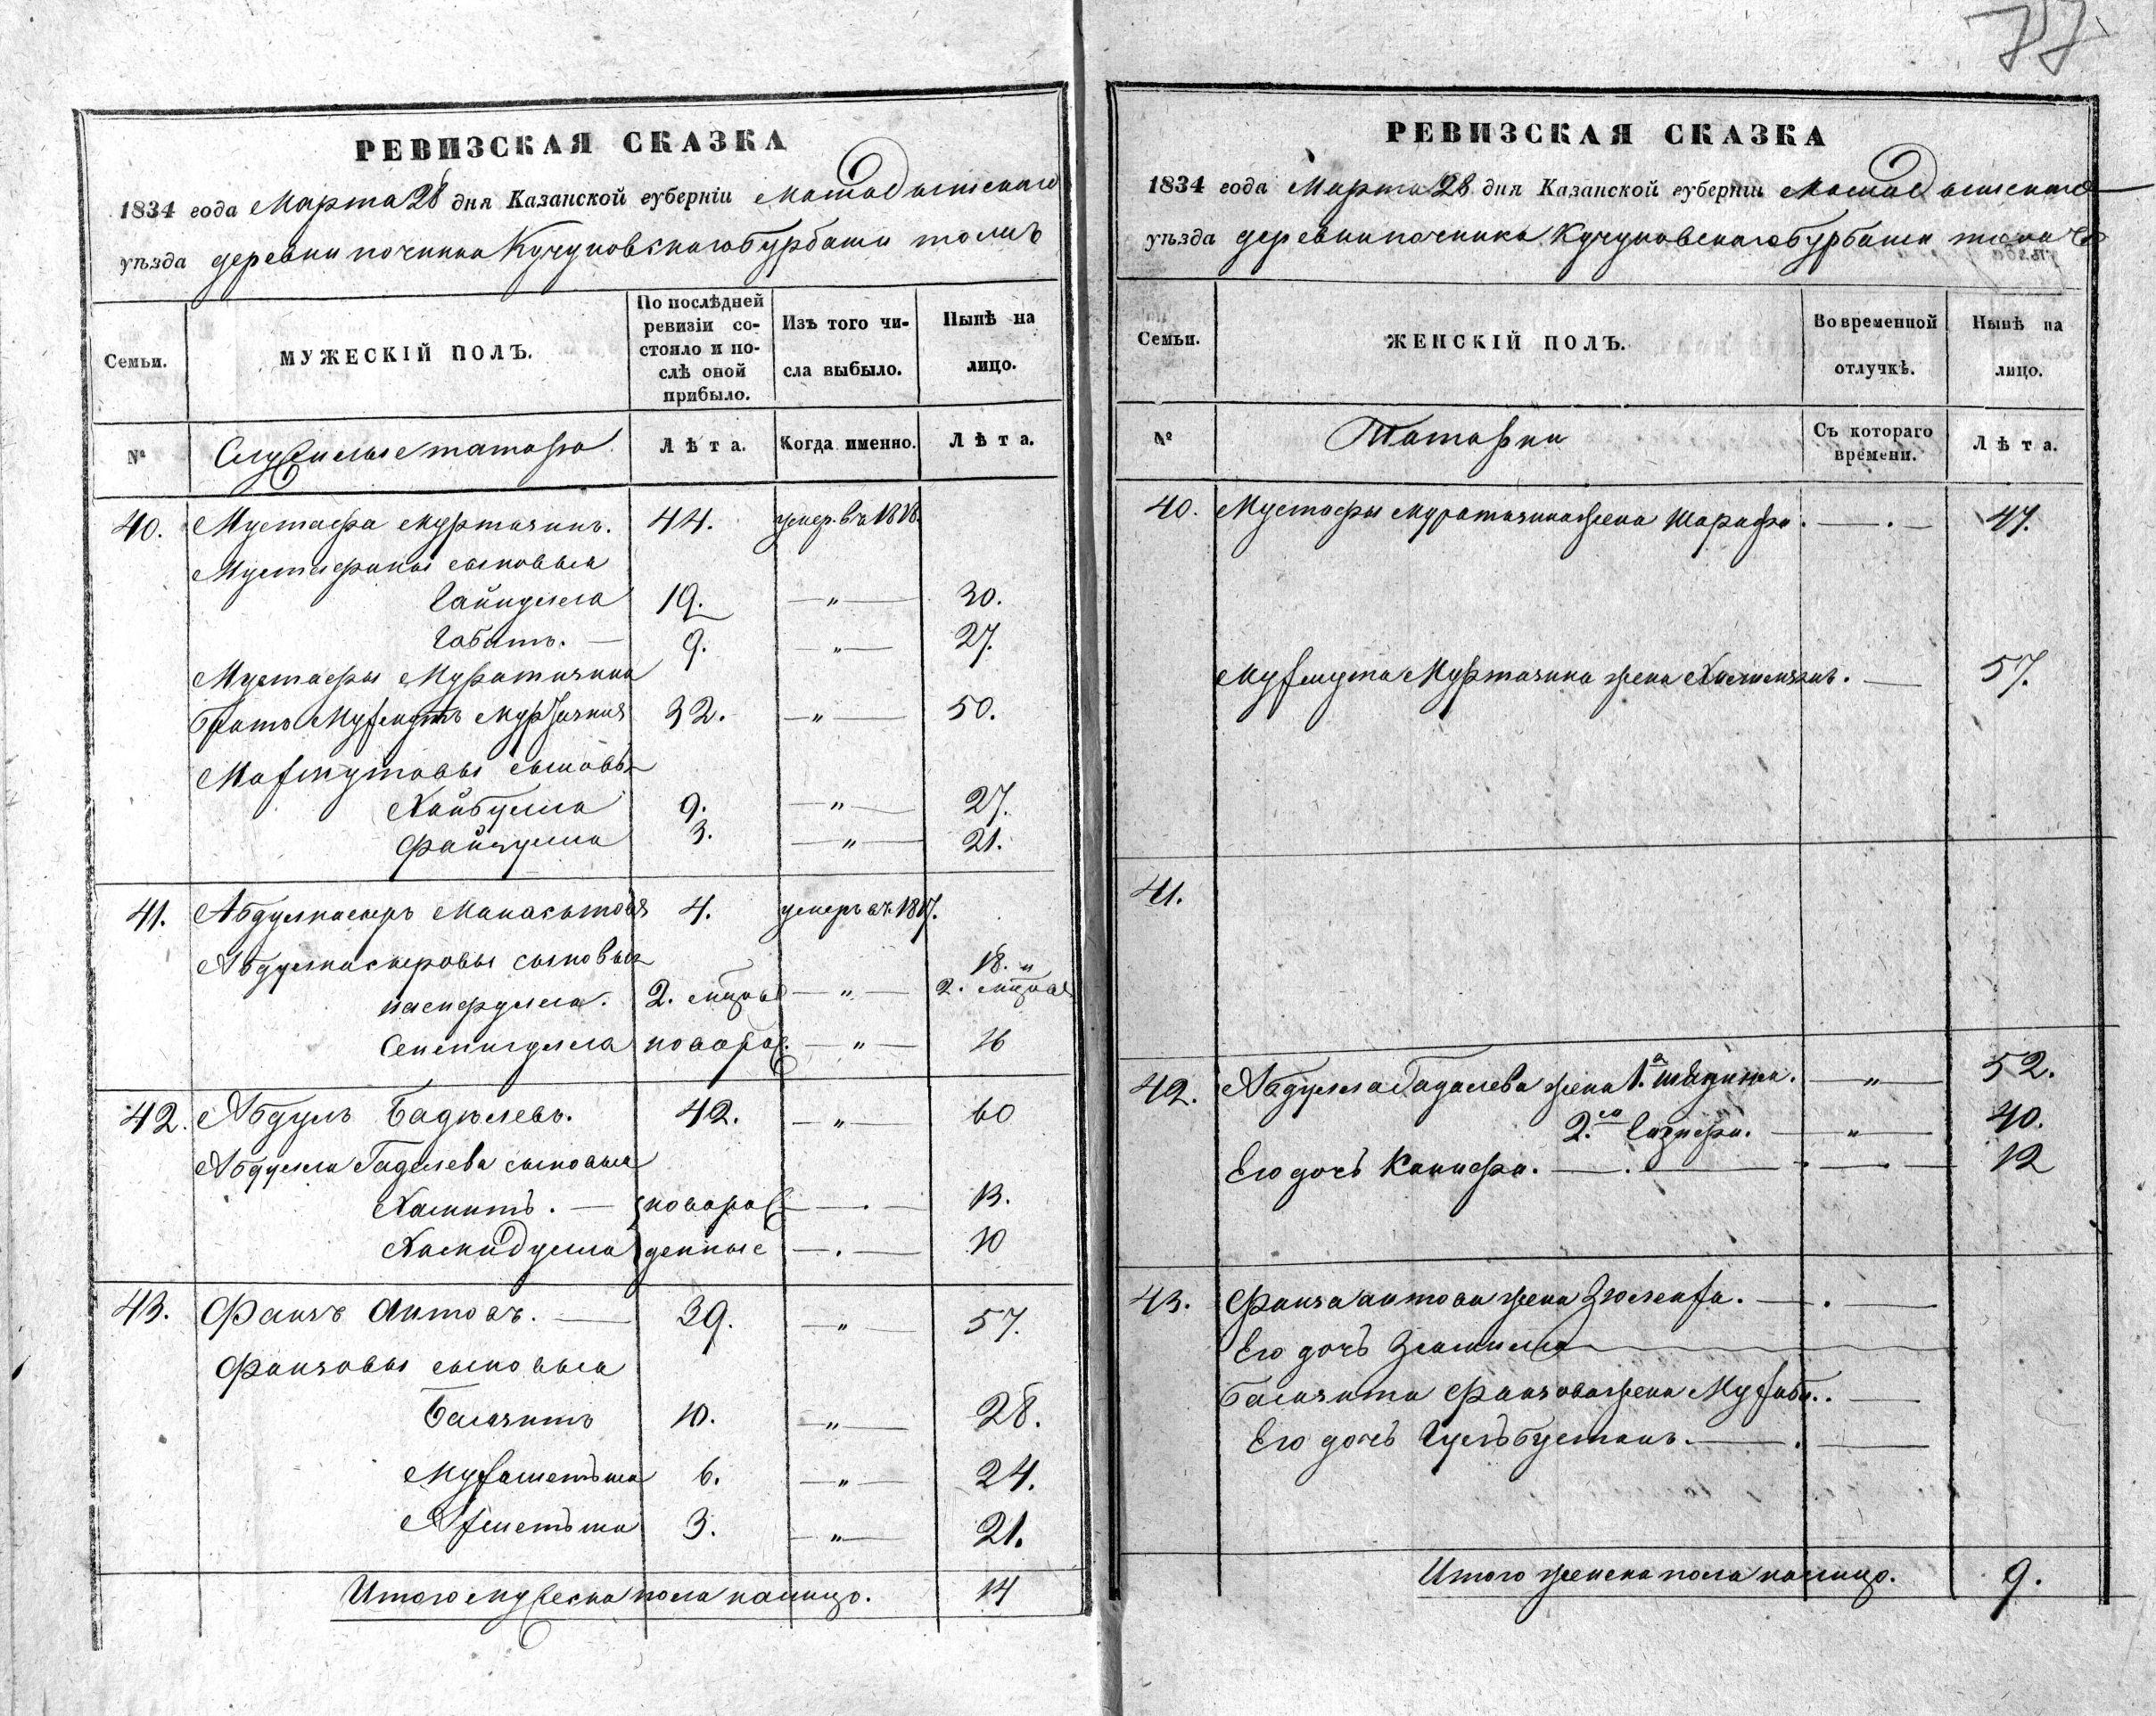 77
РЕВИЗСКАЯ СКАЗКА
1834 года Марта 28 дня Казанской губерніи Мамадышскаго
уѣзда деревни починка Кучуковскаго Бурбаши толигъ
Семьи.
МУЖЕСКІЙ ПОЛЪ.
По послѣдней ревизіи состояло и послѣ оной прибыло.
Изъ того числа выбыло.
Нынѣ на лицо.
№
Служилые татара
Лѣта.
Когда именно.
Лѣта.
40. Мустафа Муртазинъ. 44. умер. въ 1818.
Мустафины сыновья
Гайнулла 19. — " — 30.
Габитъ. — 9. — " — 27.
Мустафы Муратазина
братъ Махмутъ Муртазинъ 32. — " — 50.
Махмутовы сыновья
Хайбулла 9. — " — 27.
Файзулла 3. — " — 21.
41. Абдулнасыръ 4. умеръ въ 1817.
Абдулнасыровы сыновья 18. "
насырулла. 2. мцовъ — " — 2. мцовъ
новорож. — " — 16
42. Абдулъ Бадалевъ. 42. — " — 60
Абдулла Гадалева сыновья
Хамитъ. — новорож — . — 13.
Хамидулла денные — . — 10
43. Фаизъ Аитовъ. — 39. — " — 57.
Фаизовы сыновья
Баязитъ 10. — " — 28.
Мухаметьша 6. — " — 24.
Ахметьша 3. — " — 21.
Итого мужеска пола налицо. 14
РЕВИЗСКАЯ СКАЗКА
1834 года Марта 28 дня Казанской губерніи Мамадышскаго
уѣзда деревни починка Кучуковскаго Бурбаши
Семьи.
ЖЕНСКІЙ ПОЛЪ.
Во временной отлучкѣ.
Нынѣ на лицо.
№
Татарки
Съ котораго времени.
Лѣта.
40. Мустафы Муратазина жена Шарифа. — . — 47.
Махмута Муртазина жена . — 57.
41.
42. Абдулла Гадалева жена 1.а — " — 52.
2.ая — " — 40.
Его дочь Канифа. — . — . — 12
43. Фаиза аитова жена Зюлейха. — . —
Его дочь
Баязита Фаизова жена . —
Его дочь Гульбустанъ. — . —
Итого женска пола налицо. 9.